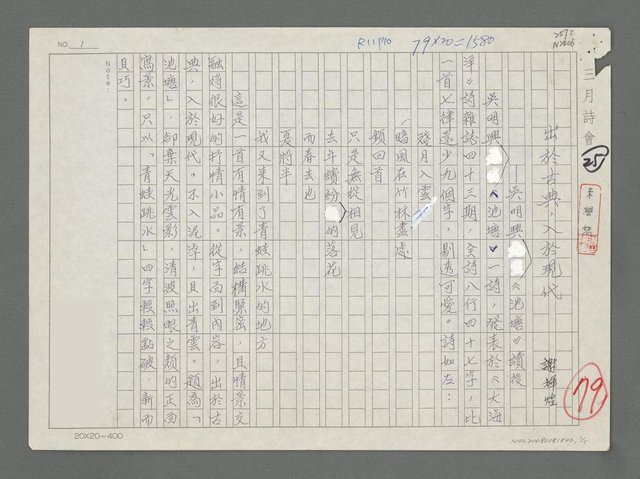 NO. 1
R11P10
79×20=1580
三月詩會
25
79
Note:
出於古典，入於現代
—吳明興《池塘》讀後
謝輝煌
吳明興《池塘》一詩，發表於《大海
洋》詩雜誌四十三期，全詩八行四十七字，比
一首七律還少九個字，剔透可愛。詩如左：
殘月入雲
暗風在竹林盡處
頻回首
只是無從相見
去年繽紛的落花
而春去也
夏將半
我又來到了青蛙跳水的地方
這是一首有情有景，結構緊密，且情景交
融得很好的抒情小品。從字面到內容，出於古
典，入於現代。不入泥淖，且出青雲。題為「
池塘」，卻棄天光雲影，清波照眼之類的正面
寫景，只以「青蛙跳水」四字輕輕點破，新而
且巧。
20×20=400